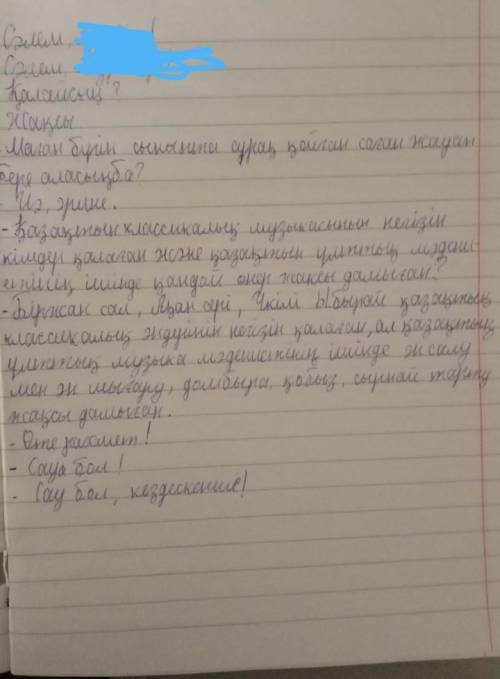 Сәлем, !
Сәлем,
- Қалайсың?
- Жақсы
- Маған бүгін сыныпта сұрақ қойған соған жауап
бере аласыңба?
- Иә, әрине.
- Қазақтың классикалық музыкасының негізін
кімдер қалаған және қазақтың ұлттық мәдени-
етінің ішінде қандай өнер жақсы дамыған?
- Біржан сал, Ақан сері, Үкілі Ыбырай қазақтың
классикалық әндүйінін негізін қалаған, ал қазақтың
ұлттық музыка мәдениетінің ішінде ән салу
мен ән шығару, домбыра, қобыз, сырнай тарту
жақсы дамыған.
- Өте рахмет!
- Сауа бол!
- Сау бол, кездескенше!